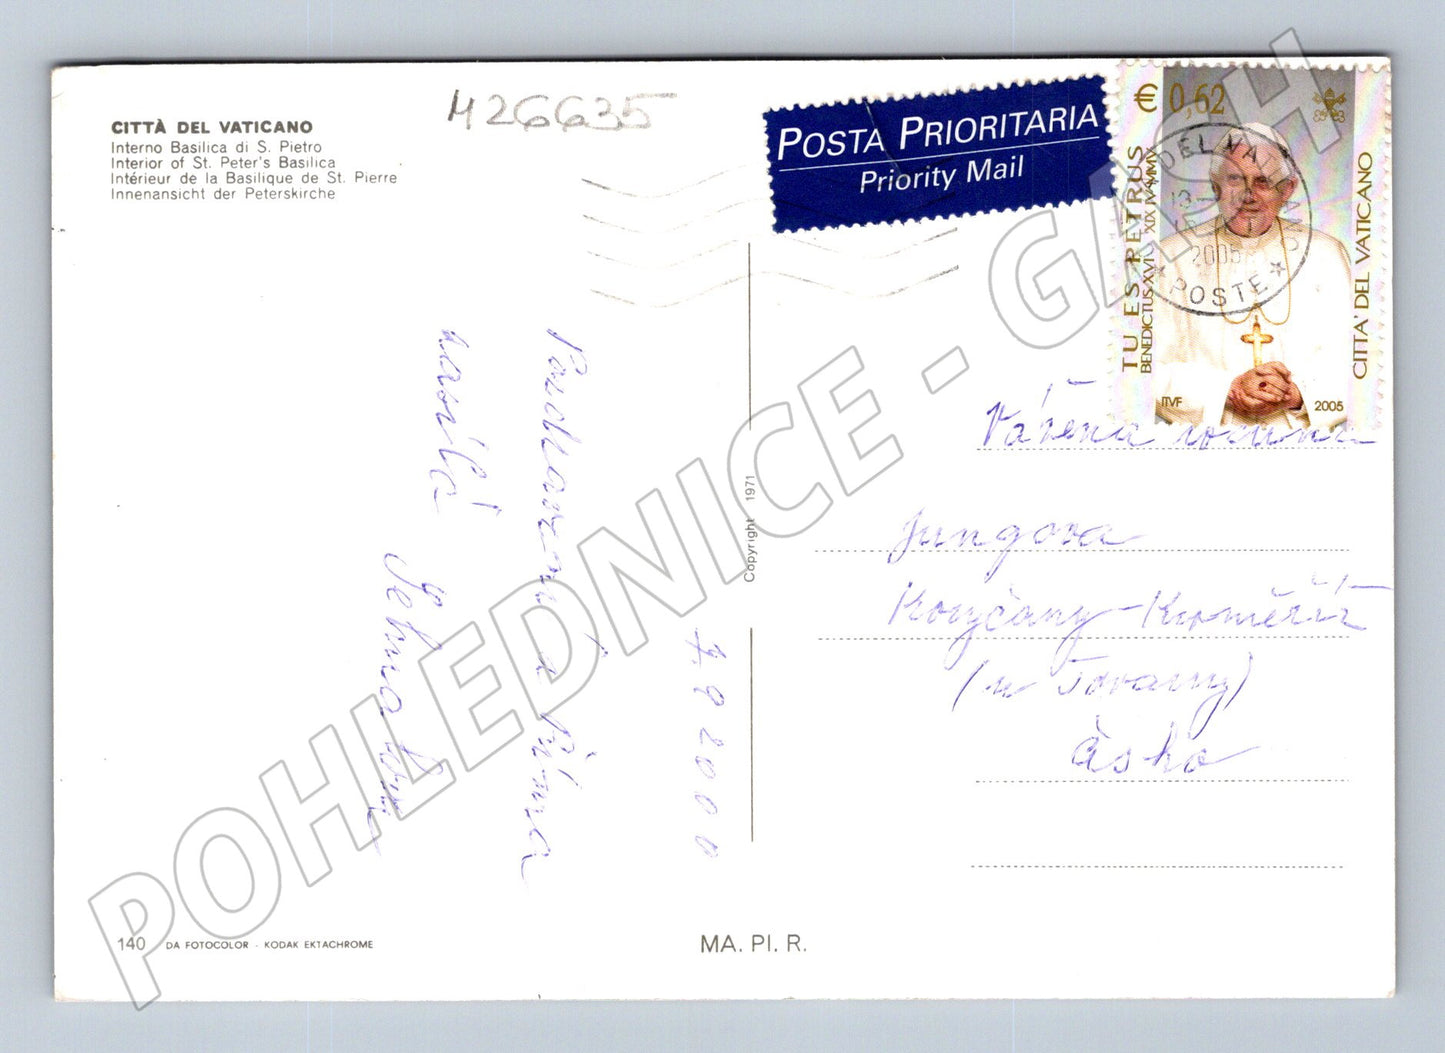 CITTÀ DEL VATICANO
Interno Basilica di S. Pietro
Interior of St. Peter's Basilica
Intérieur de la Basilique de St. Pierre
Innenansicht der Peterskirche
M26635
POSTA PRIORITARIA
Priority Mail
€ 0,62
TU ES PETRUS
BENEDICTUS XVI XIX IV MMV
CITTA' DEL VATICANO
ITVF
2005
DEL VATICANO
2005
POSTE
Pozdravení z Říma
zasílá
7. 9. 2000
Copyright 1971
Vážená rodina
Jungova
Koryčany-Kroměříž
(u Továrny)
Česko
140 DA FOTOCOLOR - KODAK EKTACHROME
MA. PI. R.
POHLEDNICE - GASH